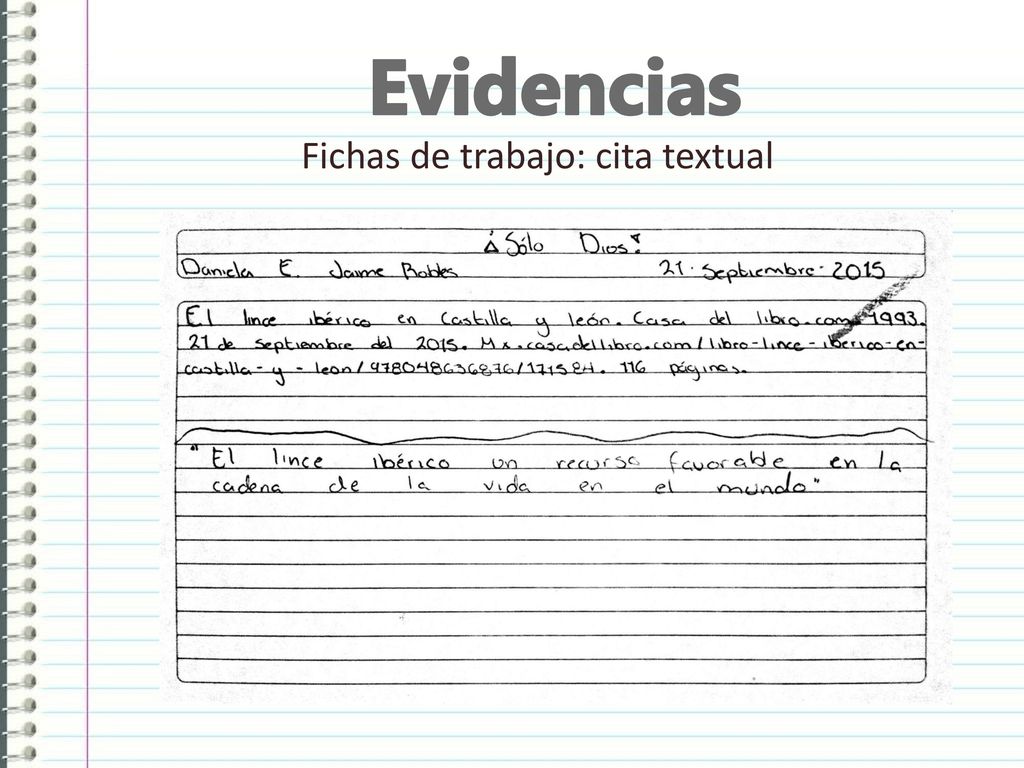 Evidencias
Fichas de trabajo: cita textual
¡Sólo Dios!
Daniela E. Jaime Robles 21. Septiembre. 2015
El lince ibérico en Castilla y león. Casa del libro.com 1993.
21 de septiembre del 2015. Mx.casadellibro.com/libro-lince-iberico-en-
castilla-y-leon/978048636876/171584. 116 páginas.
"El lince ibérico un recurso favorable en la
cadena de la vida en el mundo"